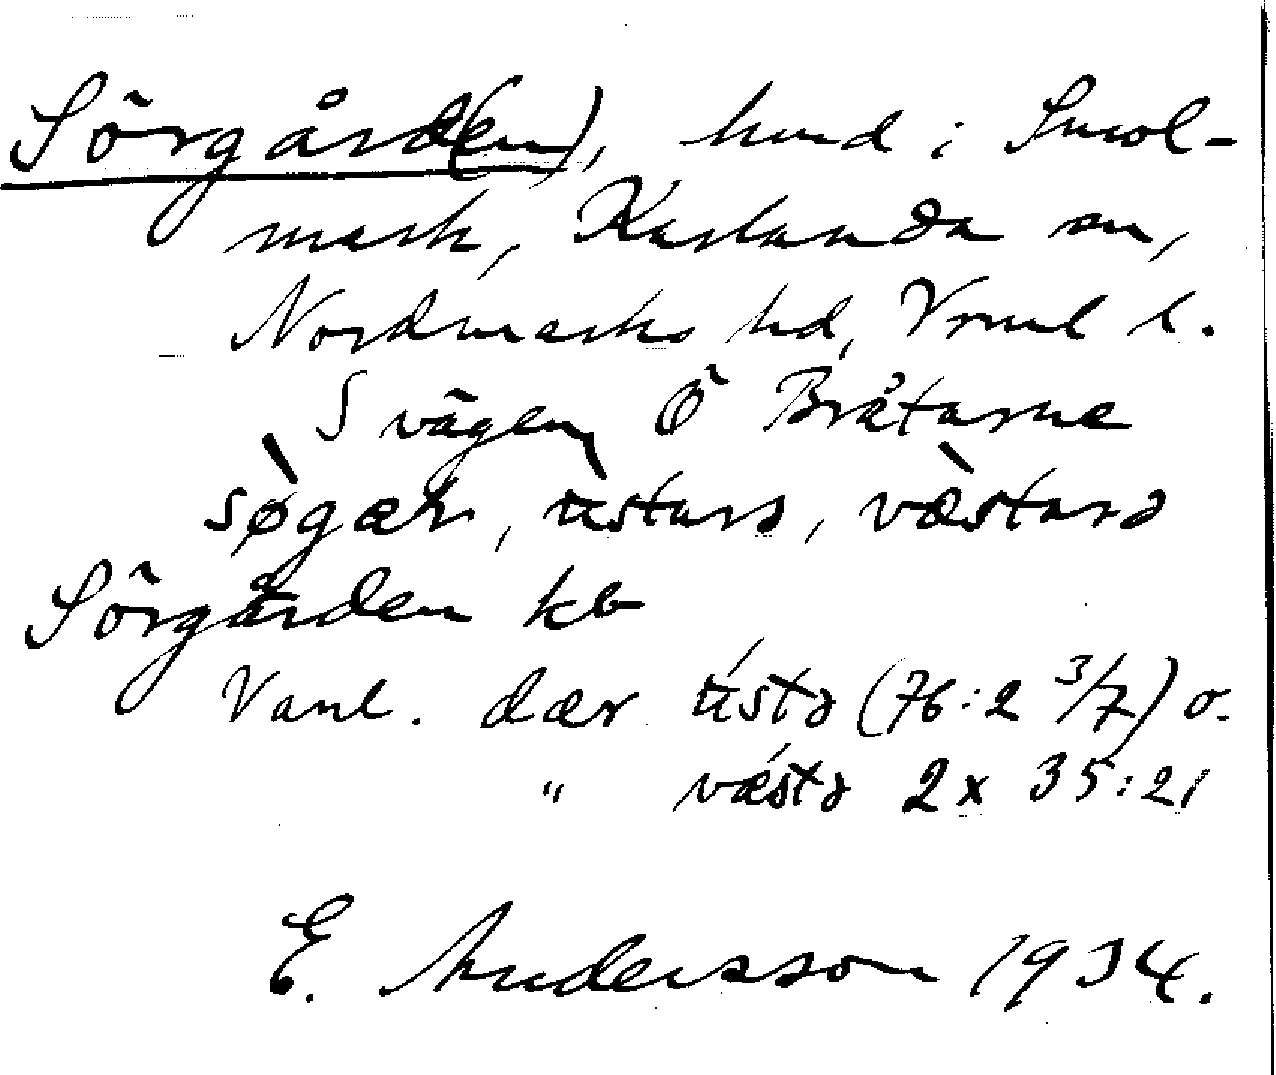 Sörgård(en), hmd i Smol-
mark, Karlanda sn,
Nordmarks hd, Vrml l.
S vägen Ö Bråtarne
søgæɽn, ùstans, væ̀stans
Sörgården kb
Vanl. dær ústə (76:2 3/7) o.
" vǽstə 2 x 35:21
E. Andersson 1934.